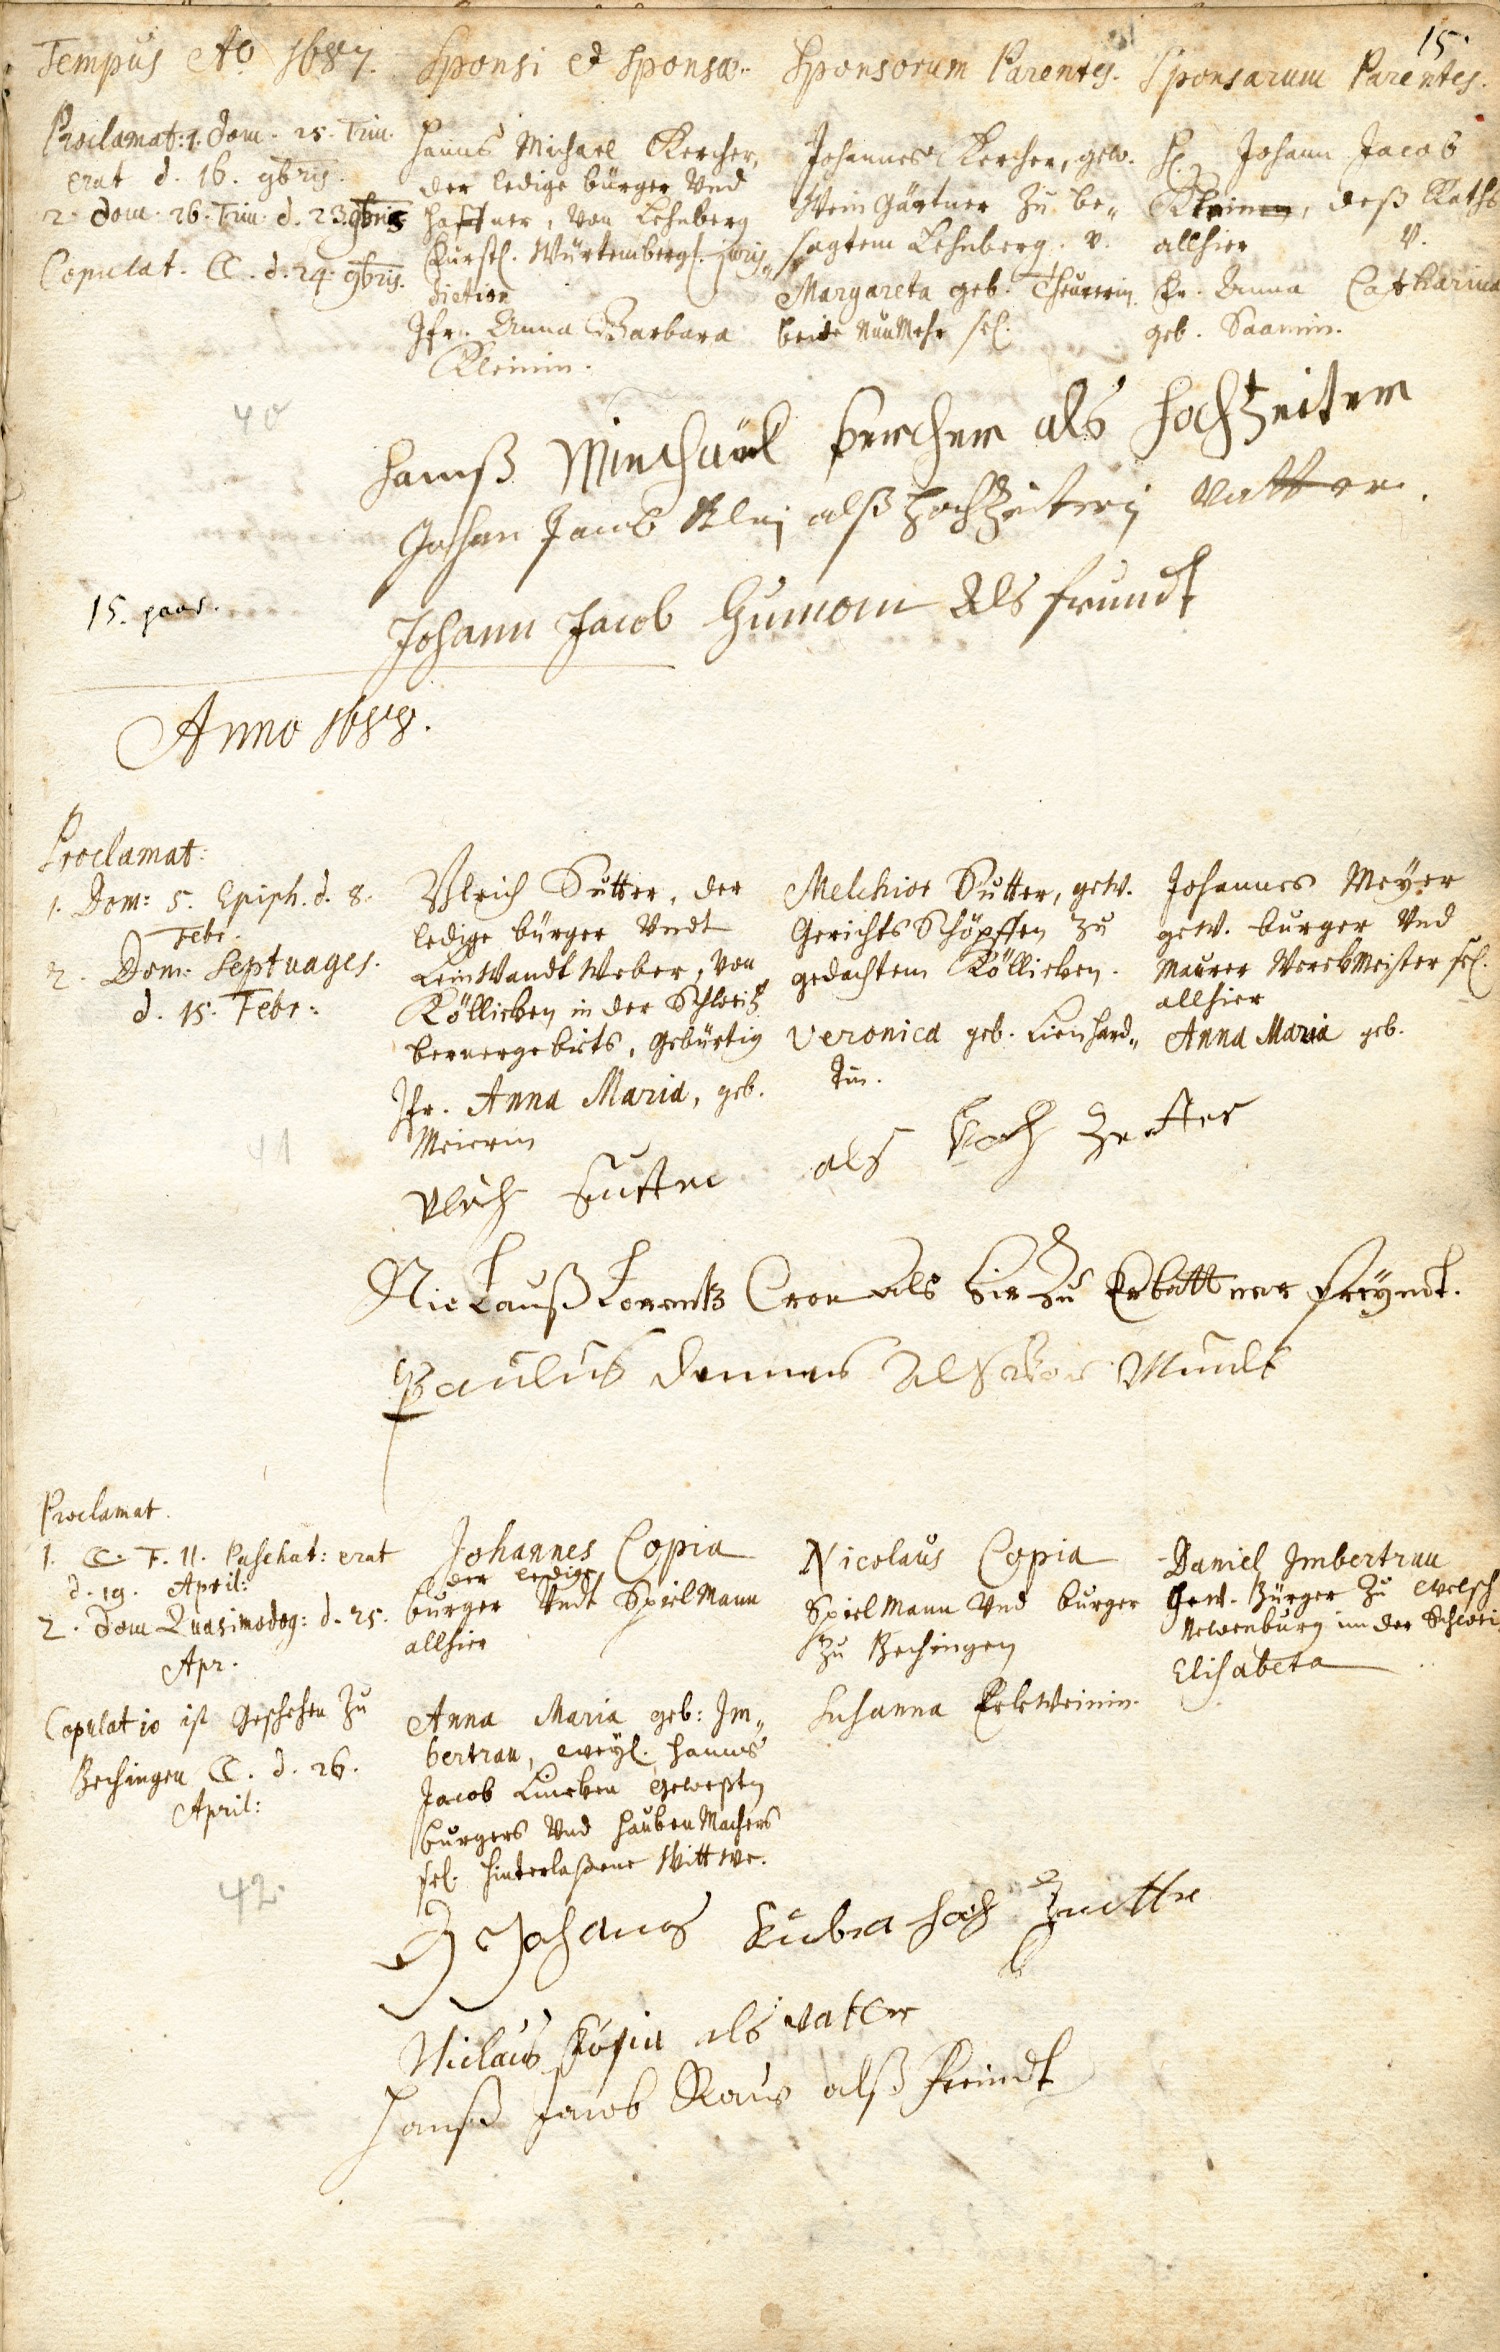 15.
Tempus Aō 1687. Sponsi et Sponsæ. Sponsorum Parentes. Sponsarum Parentes.
Proclamat: 1. Dom. 25. Trin.
erat d. 16. 9bris.
2. Dom. 26. Trin. d. 23. 9bris
Copulat. C. d. 24. 9bris.
Hanns Michael Kercher,
der ledige bürger Vnd
Haffner, von Lehnberg
Fürstl. Würtembergl. Juris„
diction
Jfr. Anna Barbara
Kleinin.
Johannes Kercher, gew.
Wein Gärtner zu be„
sagtem Lehnberg. v.
Margareta geb.
beide nun Mehr sel.
H. Johann Jacob
Klein, deß Raths
allhier v.
Fr. Anna Catharina
geb. Saamin.
40
Hanß Michael Kercher als Hochzeiter
Johan Jacob Klei alß Hochzeiteri Vatter.
15. paar.
Johann Jacob als frundt
Anno 1688.
Proclamat:
1. Dom: 5. Epiph. d. 8.
Febr.
2. Dom: Septuages.
d. 15. Febr:
Vlrich Sutter, der
ledige bürger Vndt
LeinWandt Weber, von
Köllicken in der Schweitz
bernergebiets, gebürtig
Jfr. Anna Maria, geb.
Meierin
Melchior Sutter, gew.
Gerichts Schöpffen zu
gedachtem Köllicken.
Veronica geb. Lienhard„
tin.
Johannes Meyer
gew. burger Vnd
Maurer WerckMeister sel.
allhier
Anna Maria geb.
41
Vlrich Sutter als Hoch Zeitter
Nicklauß Lorentz Cron als hierzu Erbettner freyndt.
Paulus als
Proclamat.
1. C. F. II. Paschat: erat
d. 19. April:
2. Dom Quasimodog: d. 25.
Apr.
Copulatio ist Geschehen zu
Bechingen C. d. 26.
April:
Johannes Copia
der ledige
burger Vndt SpielMann
allhier
Anna Maria geb: Im„
bertrau, weyl. Hanns
Jacob Lincken gewesten
burgers Vnd HaubenMachers
sel. hinterlaßene Wittwe.
Nicolaus Copia
SpielMann Vnd burger
zu Bechingen
Susanna
Daniel Imbertrau
Gew. Bürger zu Welsch
Newenburg in der Schwei
Elisabeta
42.
Johans Kubia Hoch Zeitter
Niclaus Kopia als vatter
Hanß Jacob Raus alß freindt